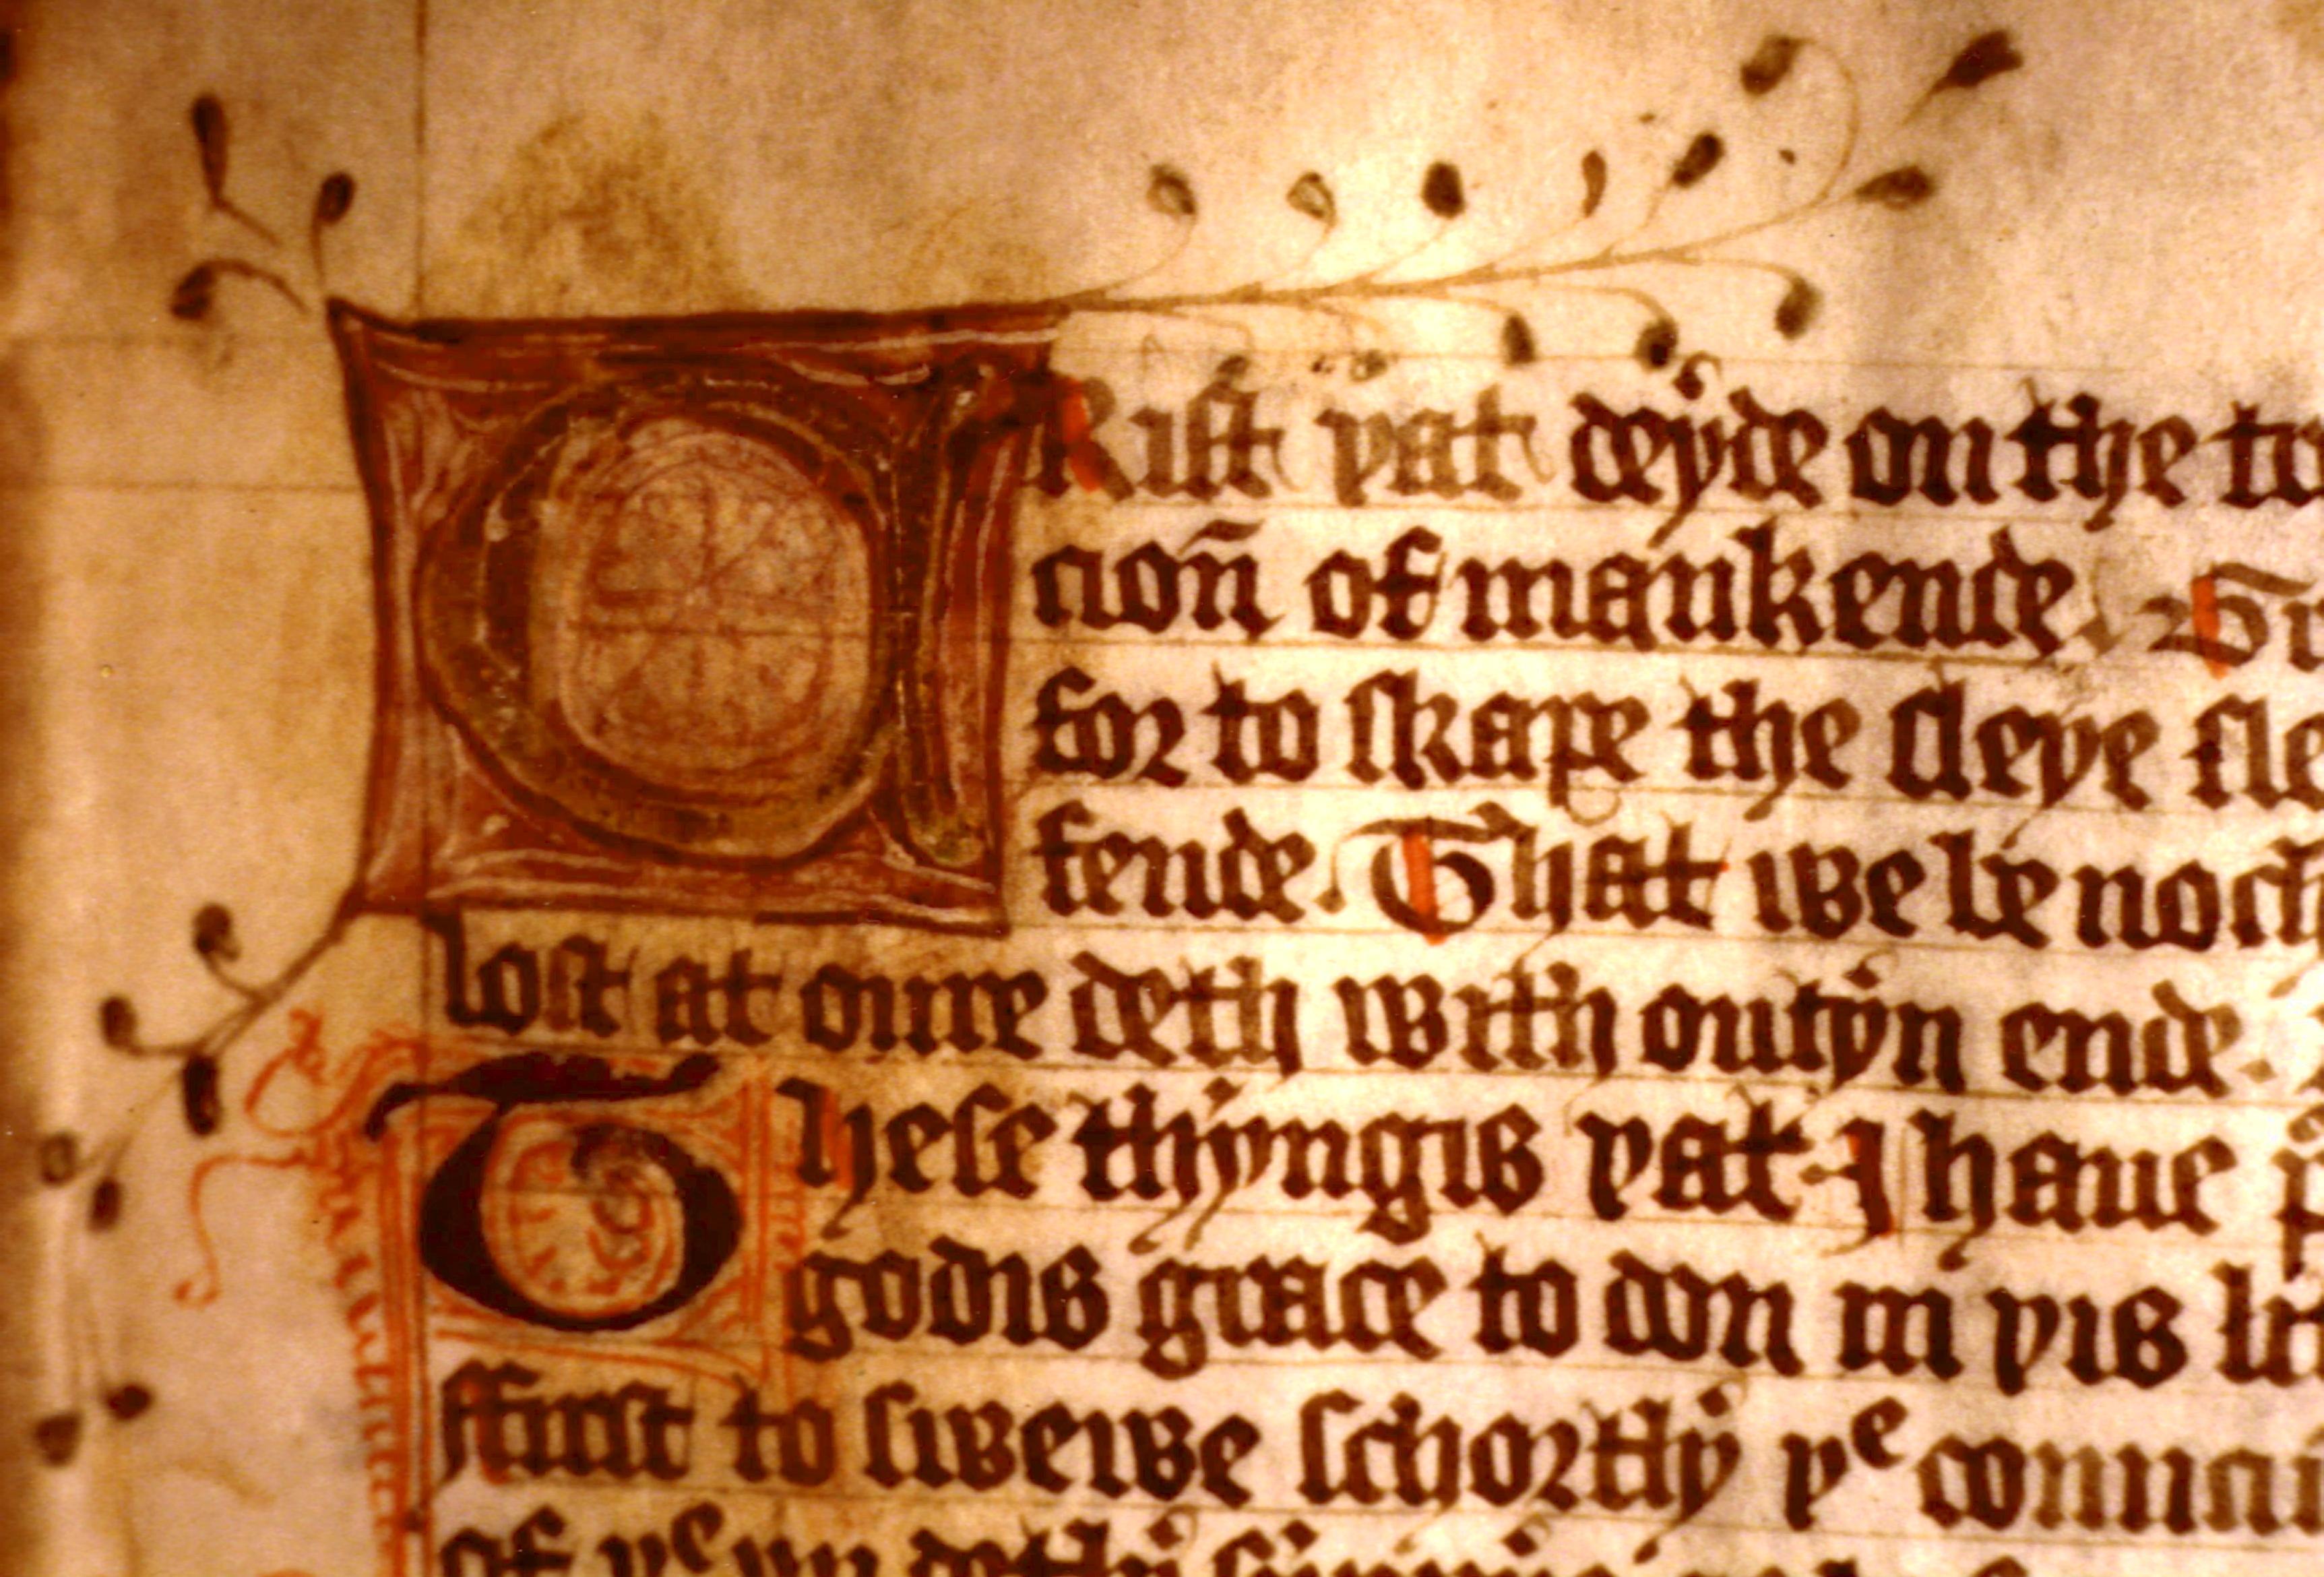 CRist yat deyde on the
cion̄ of mankende
for to skape the cleye
kende. That we be noth
lost at oure deth with outyn ende.
These thyngis yat I haue
godis grace to don in yis
ffirst to swewe schortly yᵉ
of yᵉ